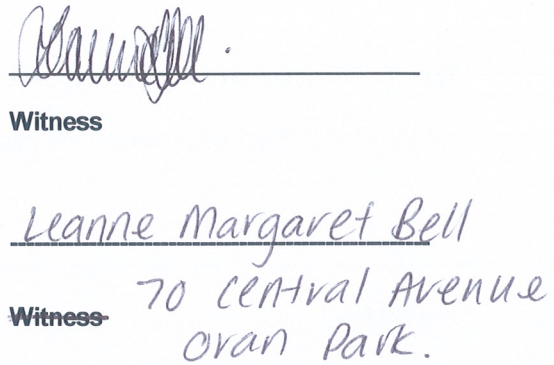 Witness
Leanne Margaret Bell
Witness 70 Central Avenue
Oran Park.